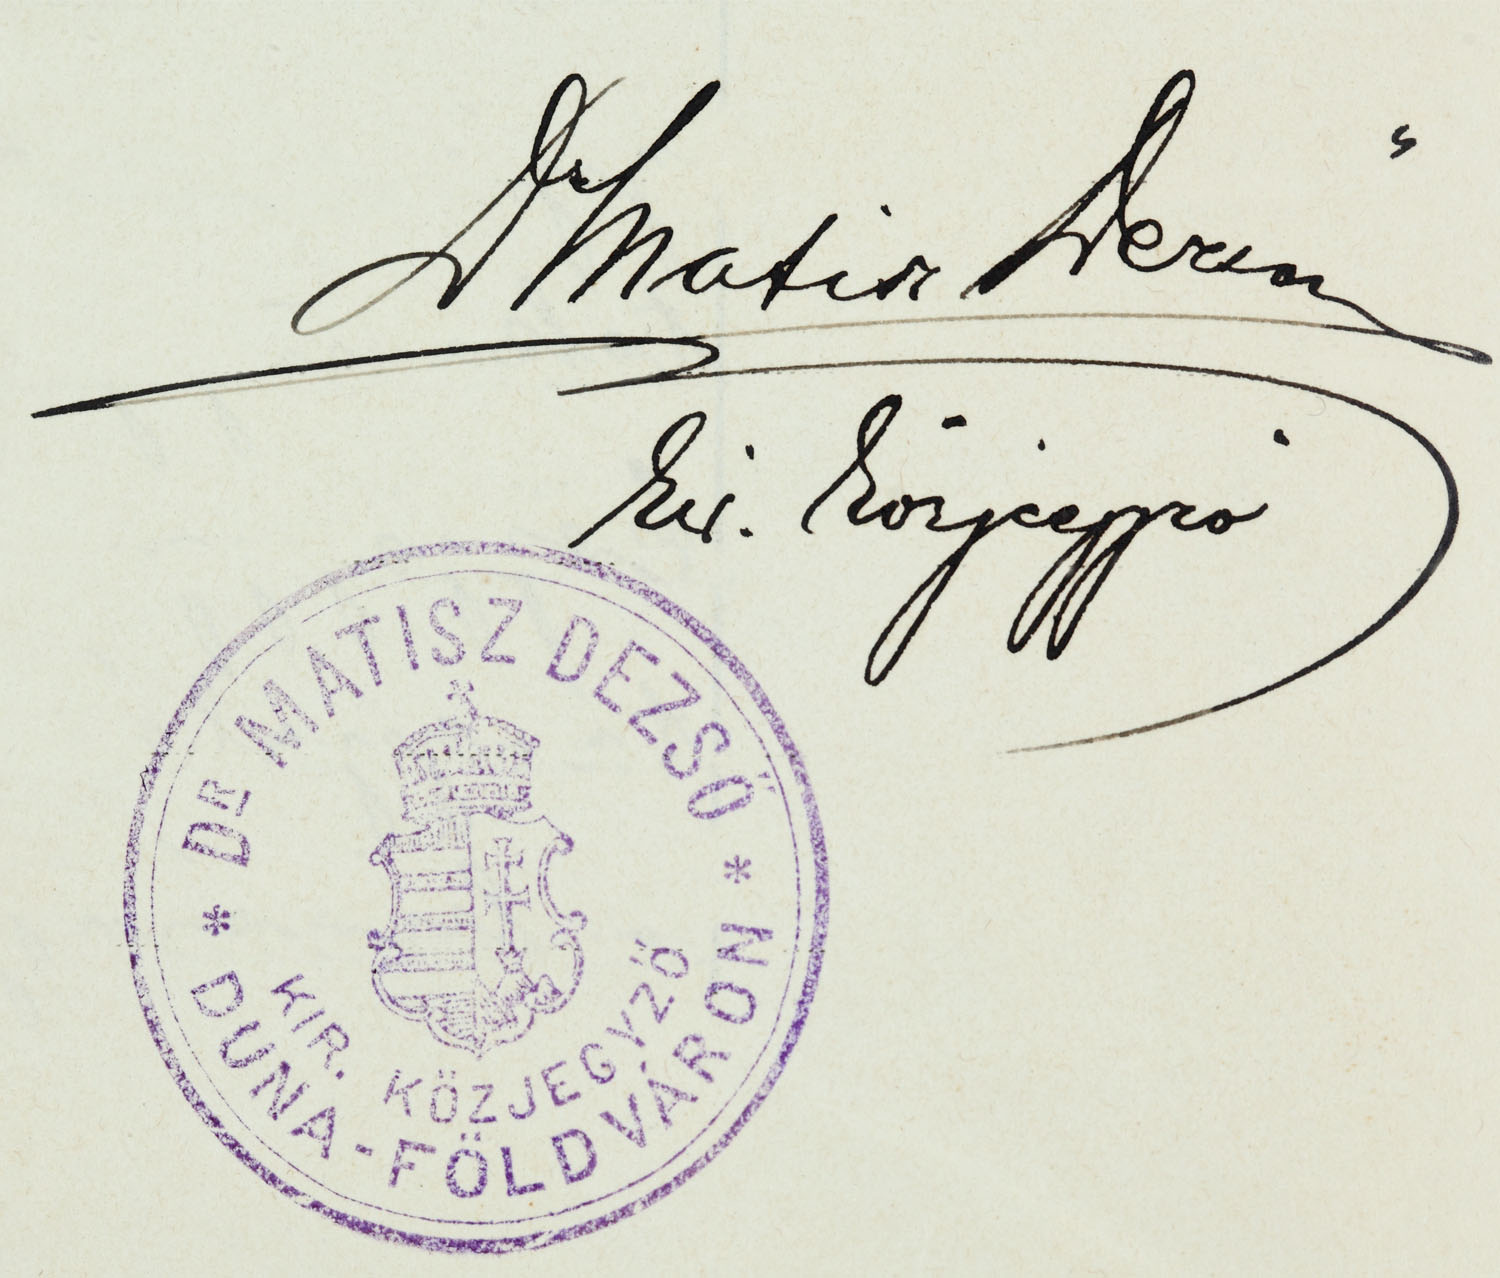 Dr Matisz Dezső
kir. közjegyző
* DR MATISZ DEZSŐ *
KIR. KÖZJEGYZŐ
DUNA-FÖLDVÁRON